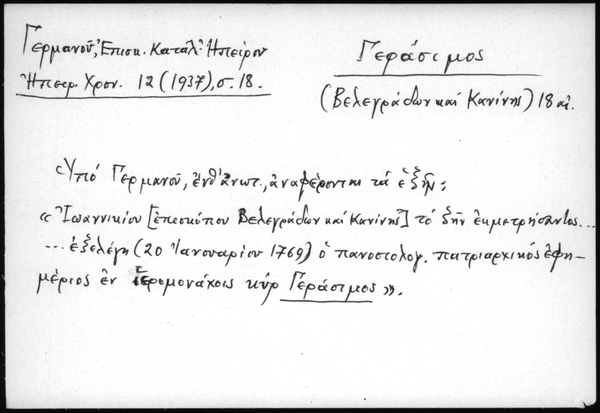 Γερμανοῦ, Ἐπισκ. Καταλ. Ἠπείρου
Ἠπειρ. Χρον. 12 (1937), σ. 18.
Γεράσιμος
(Βελεγράδων καὶ Κανίνης) 18 αἰ.
Ὑπό Γερμανοῦ, ἔνθ' ἀνωτ., ἀναφέρονται τά ἑξῆς:
« Ἰωαννικίου [ἐπισκόπου Βελεγράδων καὶ Κανίνης] τό ζῆν ἐκμετρήσαντος...
... ἐξελέγη (20 Ἰανουαρίου 1769) ὁ πανοσιολογ. πατριαρχικός ἐφη-
μέριος ἐν ἱερομονάχοις κύρ Γεράσιμος ».